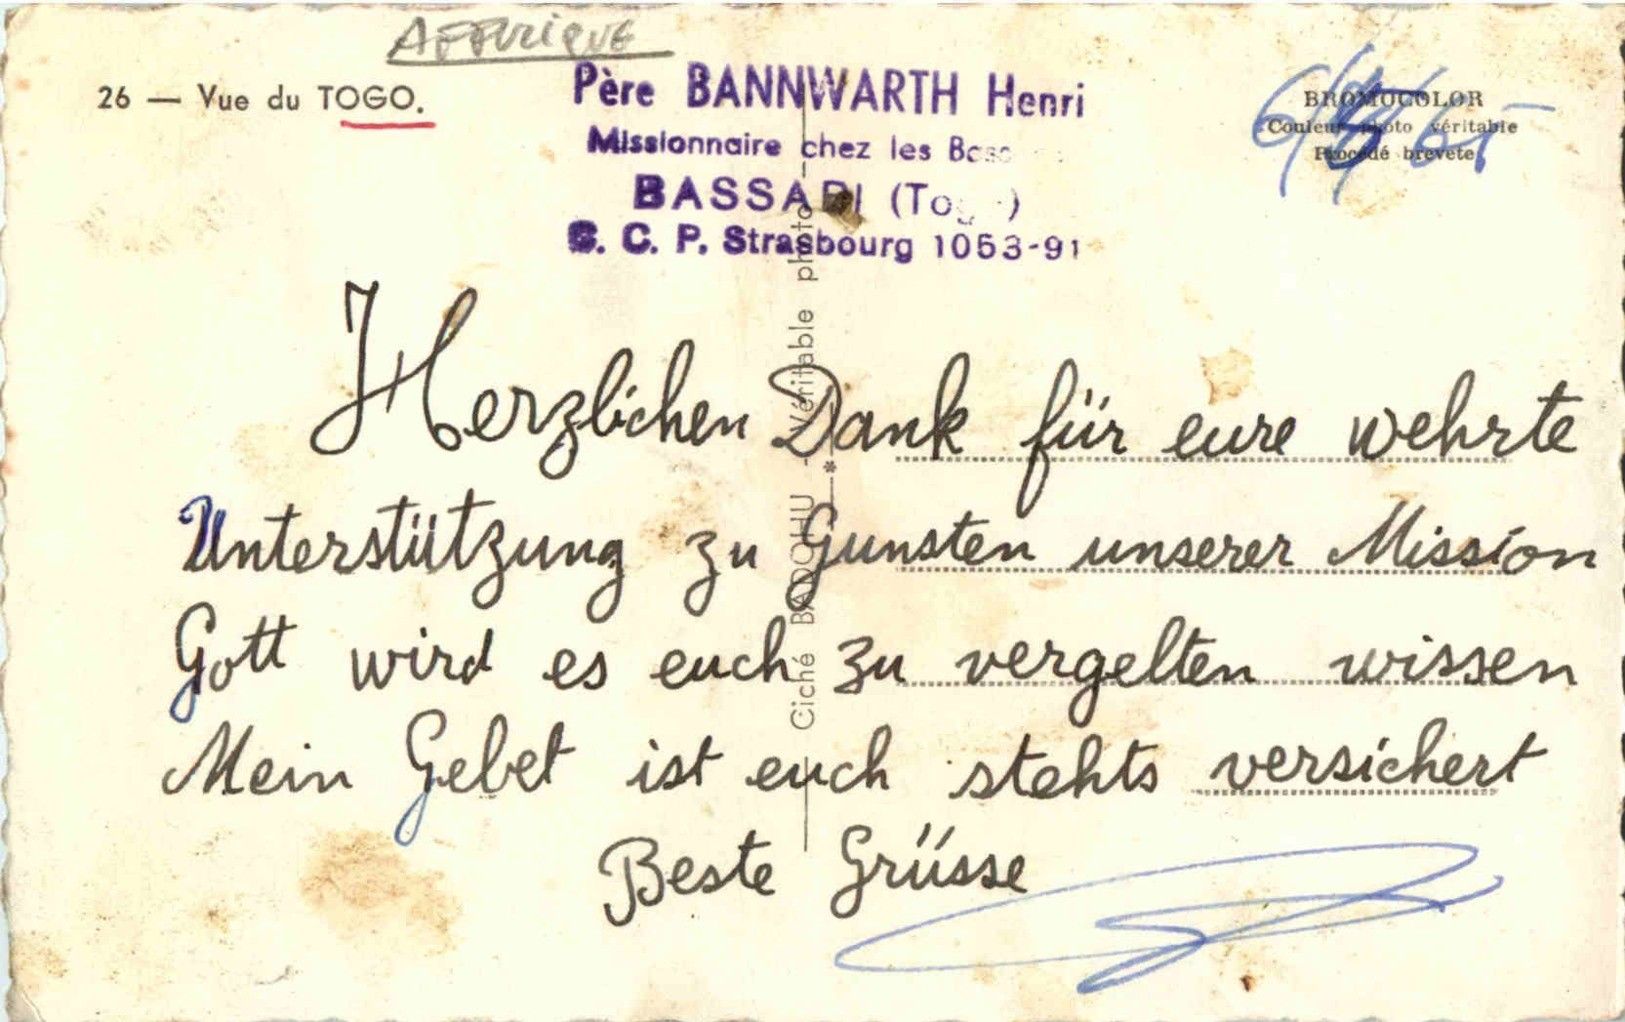 AFFRIQUE
26 — Vue du TOGO.
Père BANNWARTH Henri
Missionnaire chez les
BASSARI (Togo)
C. C. P. Strasbourg 1053-91
BROMOCOLOR
Couleur photo véritable
Procédé breveté
Herzlichen Dank für eure wehrte
Unterstützung zu Gunsten unserer Mission
Gott wird es euch zu vergelten wissen
Mein Gebet ist euch stehts versichert
Beste Grüsse
Cliché BADOHU - Véritable photo